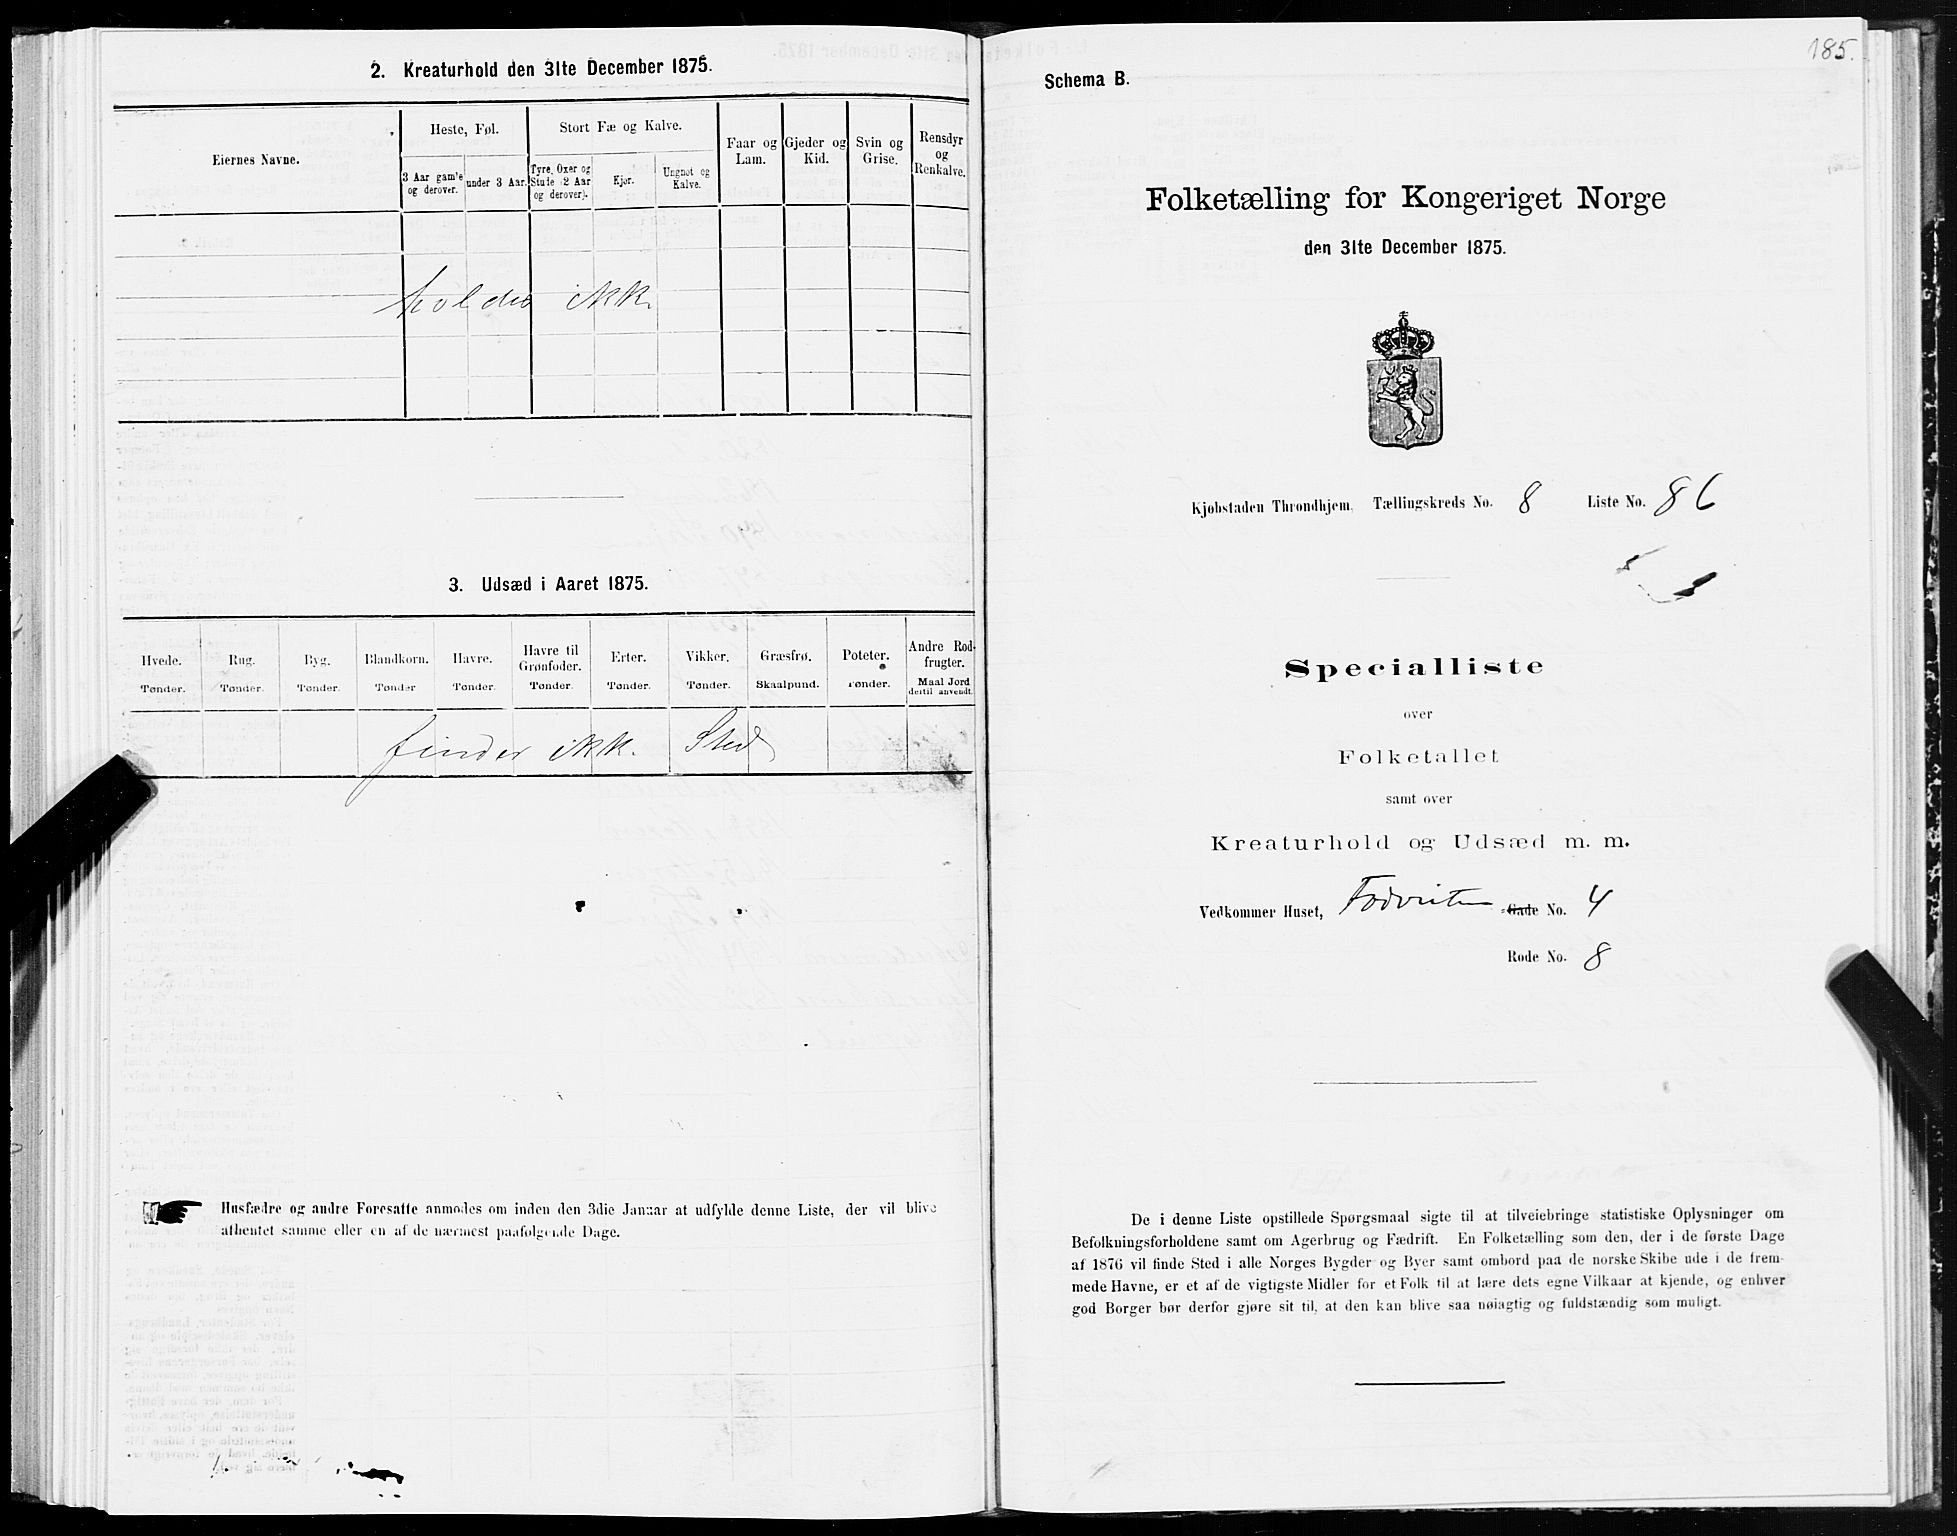 2. Kreaturhold den 31te December 1875.
Eiernes Navne.
Heste, Føl.
Stort Fæ og Kalve.
Faar og Lam.
Gjeder og Kid.
Svin og Grise.
Rensdyr og Renkalve.
3 Aar gamle og derover.
under 3 Aar.
Tyre, Oxer og Stude (2 Aar og derover).
Kjør.
Ungnøt og Kalve.
holdes ikke
3. Udsæd i Aaret 1875.
Hvede. Tønder.
Rug. Tønder.
Byg. Tønder.
Blandkorn. Tønder
Havre. Tønder.
Havre til Grønfoder. Tønder.
Erter. Tønder.
Vikker. Tønder.
Græsfrø. Skaalpund.
Poteter. Tønder.
Andre Rodfrugter. Maal Jord dertil anvendt.
finder ikke Sted
Husfædre og andre Foresatte anmodes om inden den 3die Januar at udfylde denne Liste, der vil blive
afhentet samme eller en af de nærmest paafølgende Dage.
185.
Schema B.
Folketælling for Kongeriget Norge
den 31te December 1875.
Kjøbstaden Throndhjem, Tællingskreds No. 8 Liste No. 86
Specialliste
over
Folketallet
samt over
Kreaturhold og Udsæd m. m.
Vedkommer Huset, Gade No. 4
Rode No. 8
De i denne Liste opstillede Spørgsmaal sigte til at tilveiebringe statistiske Oplysninger om
Befolkningsforholdene samt om Agerbrug og Fædrift. En Folketælling som den, der i de første Dage
af 1876 vil finde Sted i alle Norges Bygder og Byer samt ombord paa de norske Skibe ude i de frem-
mede Havne, er et af de vigtigste Midler for et Folk til at lære dets egne Vilkaar at kjende, og enhver
god Borger bør derfor gjøre sit til, at den kan blive saa nøiagtig og fuldstændig som muligt.